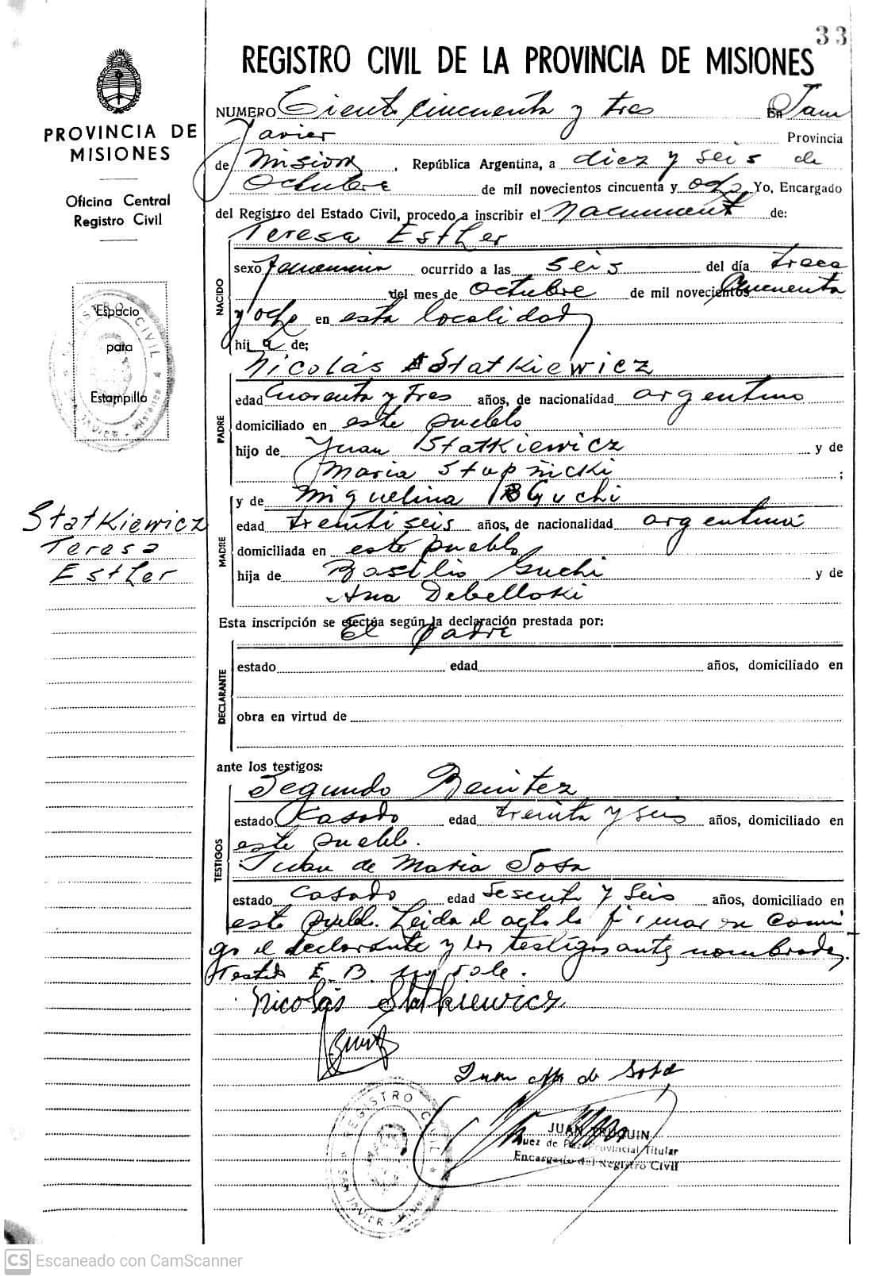 33
REGISTRO CIVIL DE LA PROVINCIA DE MISIONES
PROVINCIA DE
MISIONES
Oficina Central
Registro Civil
Espacio
para
Estampilla
StatKiewicz
Teresa
Esther
NUMERO Cient cincuenta y tres En San
Javier Provincia
de Mision, República Argentina, a diez y seis de
Octubre de mil novecientos cincuenta y ocho Yo, Encargado
del Registro del Estado Civil, procedo a inscribir el de:
Teresa Esther
NACIDO
sexo ocurrido a las seis del día trece
del mes de octubre de mil novecientos cincuenta
y ocho en esta localidad
hij a de;
Nicolás StatKiewicz
PADRE
edad Cuarenta y tres años, de nacionalidad argentino
domiciliado en este pueblo
hijo de Juan StatKiewicz y de
Maria Stapñicki ;
y de Miguelina Guchi
MADRE
edad treinti seis años, de nacionalidad argentina
domiciliada en este pueblo
hija de Basilio Guchi y de
Ana Debelloski
Esta inscripción se efectúa según la declaración prestada por:
El padre
DECLARANTE
estado edad años, domiciliado en
obra en virtud de
ante los testigos:
Segundo Benitez
TESTIGOS
estado Casado edad treinta y seis años, domiciliado en
este pueblo.
Juan de Maria Sosa
estado Casado edad Sesenta y Seis años, domiciliado en
este pueblo. Leida el acta la firmar en conmi
go el declarante y los testigos antes nombrados.
Testado E. B. no vale.
Nicolás Statkiewicz
Juan Ma de Sosa
JUAN
Juez de Paz Provincial Titular
Encargado del Registro Civil
REGISTRO CIVIL
SAN JAVIER
CS Escaneado con CamScanner